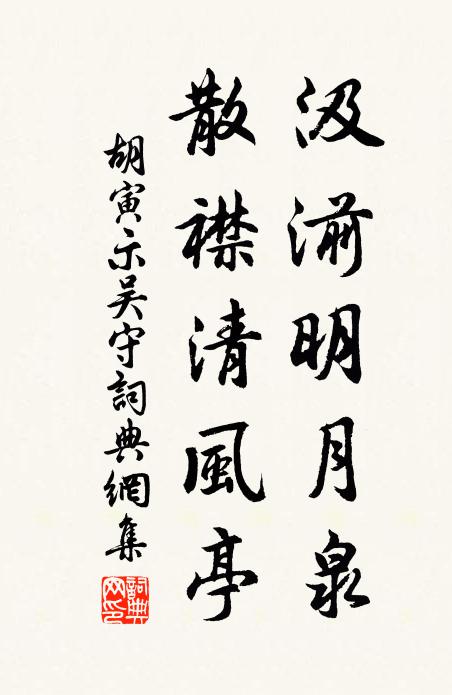 汲湔明月泉
散襟清風亭
胡寅示吴守詞典網集
詞典网印